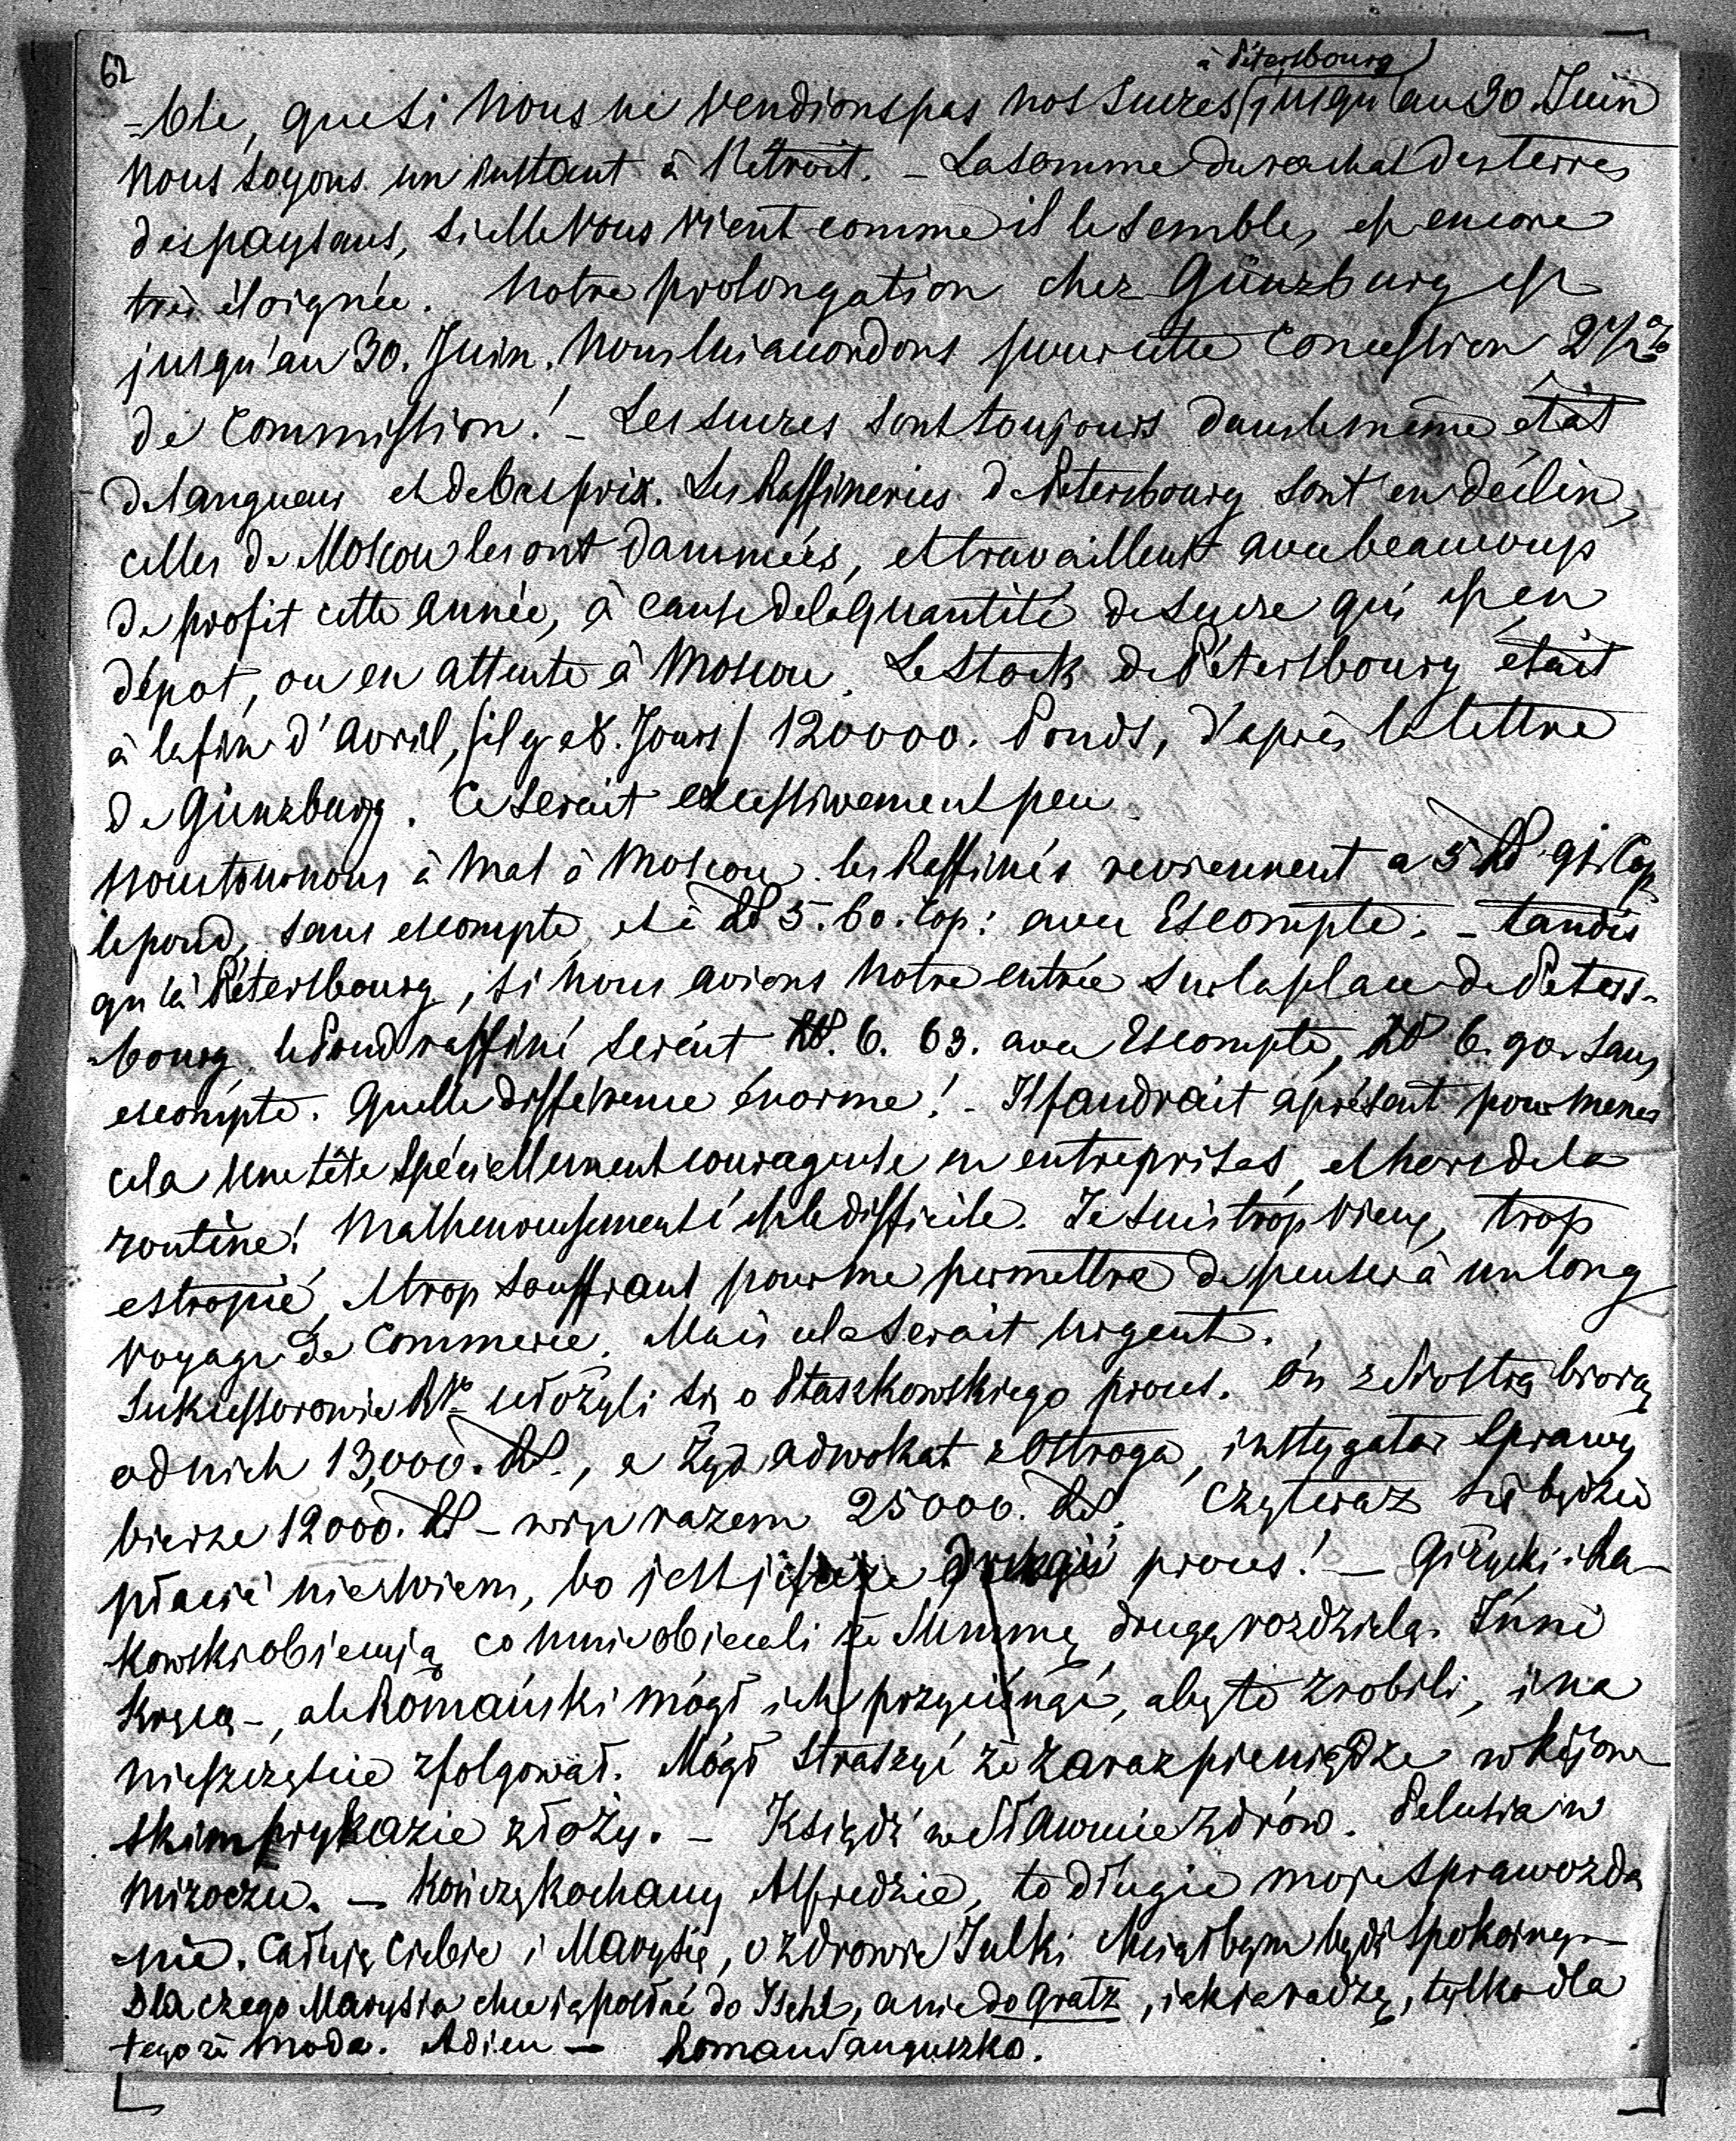 62
à Pétersbourg
-ble, que si nous ne vendions pas nos sucres jusqu'au 30 Juin
nous soyons un instant à l'étroit. – La somme du rachat des terres
des paysans, si elle vous vient comme il le semble, est encore
très éloignée. Notre prolongation chez Günzburg est
jusqu'au 30. Juin. Nous lui accordons pour cette concession 2½%
de Commission! – Les sucres sont toujours dans le même état
de langueur et de bas prix. Les Raffineries de Petersbourg sont en déclin,
celles de Moscou les ont dammées, et travaillent avec beaucoup
de profit cette année, à cause de la quantité de sucre qui est en
dépot, ou en attente à Moscou. Le Stock de Pétersbourg était
à la fin d'Avril, /il y a 8. Jours/ 120000. Pouds, d'après la lettre
de Günzburg. Ce serait excessivement peu.
Nous tenons à mal à Moscou. les Raffinés reviennent a 5 Rs Cop
le poud, sans escompte, et à Rs 5. 60. Cop: avec Escompte. – tandis
qu'à Pétersbourg, si nous avions notre entrée sur la place de Peters-
-bourg, le Poud raffiné serait Rs. 6. 63. avec Escompte, Rs 6. 90. sans
escompte. Quelle différence énorme! – Il faudrait àprésent pour mener
cela une tête spéciellement courageuse en entreprises, et hors de la
routine! Malheureusement c'est le difficile. Je suis trop vieux, trop
estropié, et trop souffrant pour me permettre de penser à un long
voyage de Commerce. Mais cela serait urgent.
Sukcessorowie ułożyli się o Staszkowskiego proces. On z Siostrą biorą
od nich 13,000. Rs., a Żyd adwokat z Ostroga, instygator sprawy
bierze 12000. Rs – więc razem 25000. Rs. Czy teraz się będzie
płacić nie wiem, bo jest jeszcze drugi proces! – Giżycki i Ra-
-kowski obiecują co mnie obiecali że Summę drugą rozdzielą. Inni
kręcą –, ale Romański mógł ich przycisnąć, aby to zrobili, i na
nieszczęście zfolgował. Mógł straszyć że zaraz pieniądze w kijow-
skim prykazie złoży. – Ksiądz w Sławucie zdrów. Pelusia w
Mizoczu. – Kończę kochany Alfredzie, to długie moje sprawozda
-nie. Całuję Ciebie i Marysię, o zdrowie Julki chciałbym być spokojny –
Dlaczego Marysia chce ią posłać do Ischl, a nie do Gratz, iak ia radzę, tylko dla
tego że moda. Adieu – Roman Sanguszko.